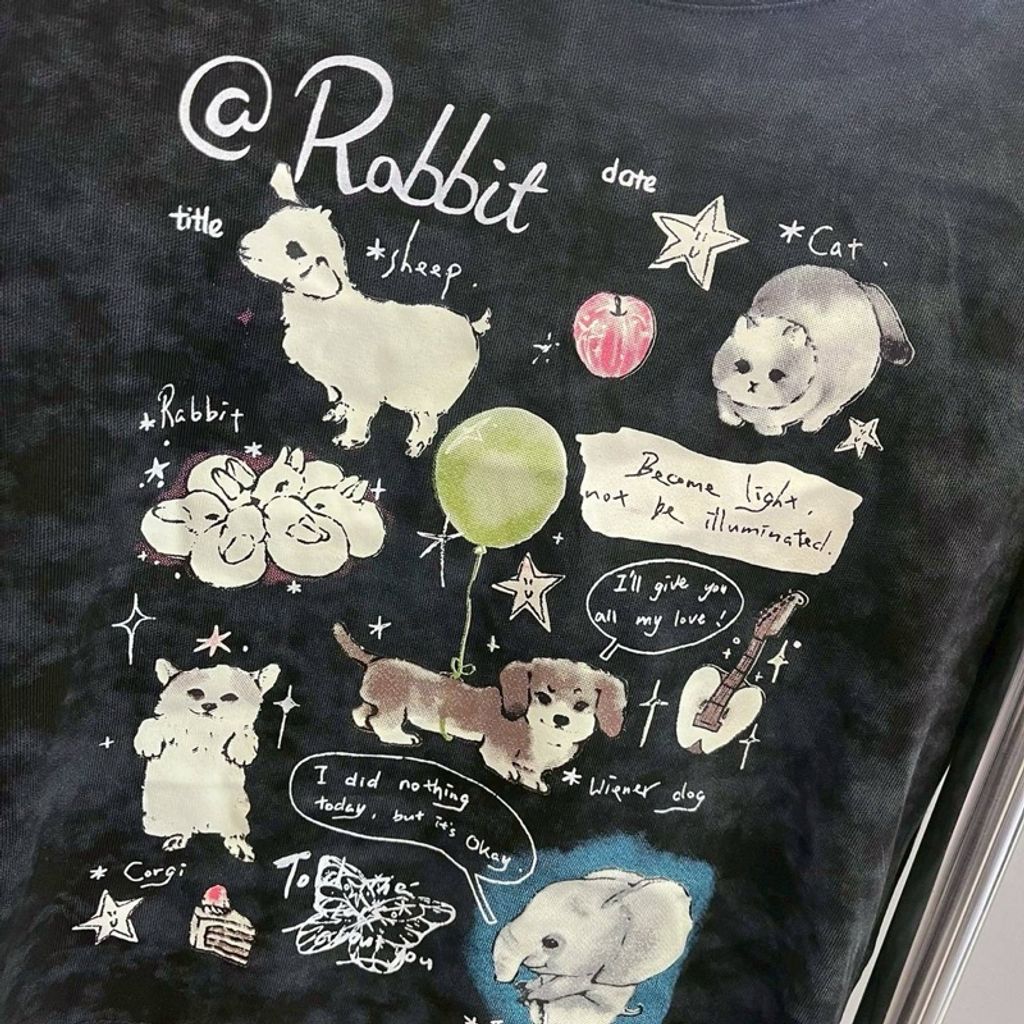 @Rabbit
date
title
*sheep.
*Cat.
*Rabbit
Become light,
not be illuminated.
I'll give you
all my love!
*Wiener dog
I did nothing
today, but it's
okay.
* Corgi
To
you